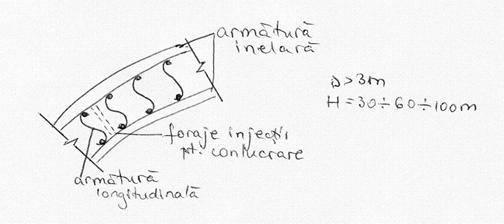 armătură
inelară
D>3m
H=30÷60÷100m
foraje injecții
pt. conlucrare
armătură
longitudinală